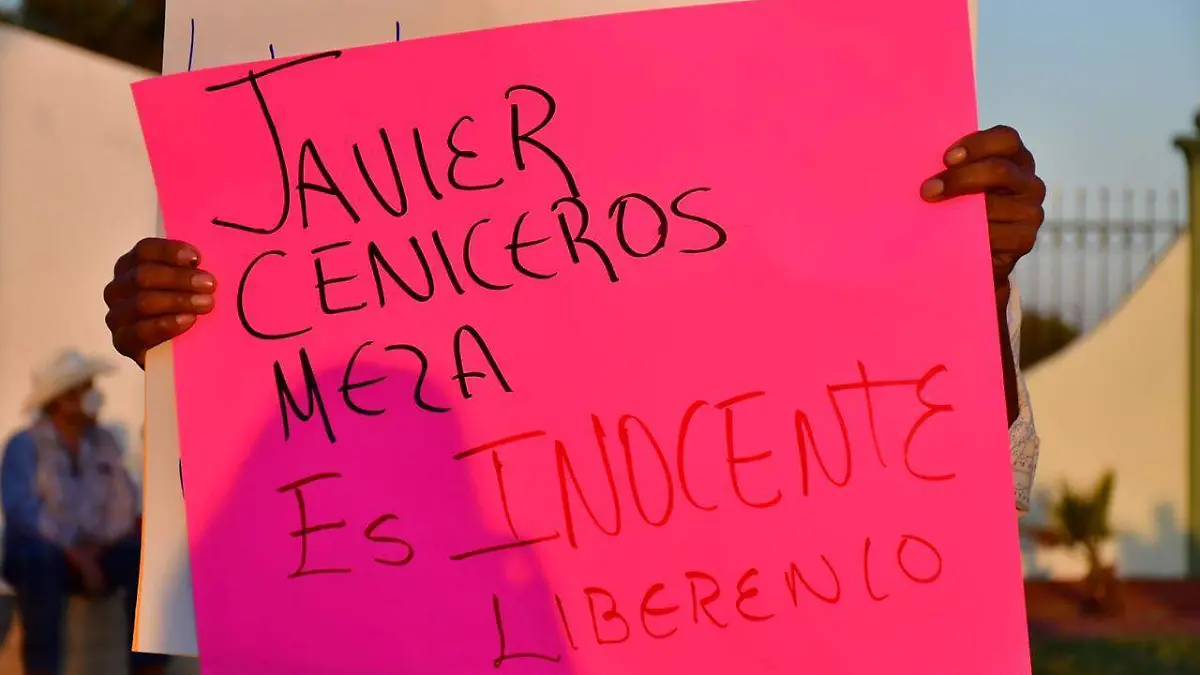 JAVIER
CENICEROS
MEZA
ES INOCENTE
LIBERENLO